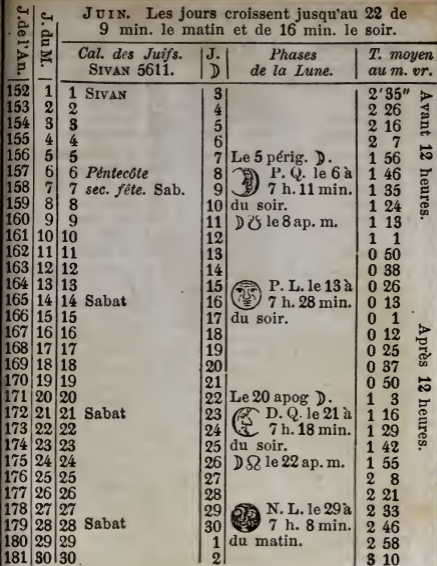 JUIN. Les jours croissent jusqu'au 22 de
9 min. le matin et de 16 min. le soir.
J. de l'An. J. du M. Cal. des Juifs. SIVAN 5611. J. ☽ Phases de la Lune. T. moyen au m. vr.
152 1 1 SIVAN 3 2'35"
153 2 2 4 2 26
154 3 3 5 2 16
155 4 4 6 2 7
156 5 5 7 Le 5 périg. ☽. 1 56
157 6 6 Péntecôte 8 P. Q. le 6 à 1 46
158 7 7 sec. fête. Sab. 9 7 h. 11 min. 1 35
159 8 8 10 du soir. 1 24
160 9 9 11 ☽ ☋ le 8 ap. m. 1 13
161 10 10 12 1 1
162 11 11 13 0 50
163 12 12 14 0 38
164 13 13 15 P. L. le 13 à 0 26
165 14 14 Sabat 16 7 h. 28 min. 0 13
166 15 15 17 du soir. 0 1
167 16 16 18 0 12
168 17 17 19 0 25
169 18 18 20 0 37
170 19 19 21 0 50
171 20 20 22 Le 20 apog ☽. 1 3
172 21 21 Sabat 23 D. Q. le 21 à 1 16
173 22 22 24 7 h. 18 min. 1 29
174 23 23 25 du soir. 1 42
175 24 24 26 ☽ ☊ le 22 ap. m. 1 55
176 25 25 27 2 8
177 26 26 28 2 21
178 27 27 29 N. L. le 29 à 2 33
179 28 28 Sabat 30 7 h. 8 min. 2 46
180 29 29 1 du matin. 2 58
181 30 30 2 3 10
Avant 12 heures.
Après 12 heures.